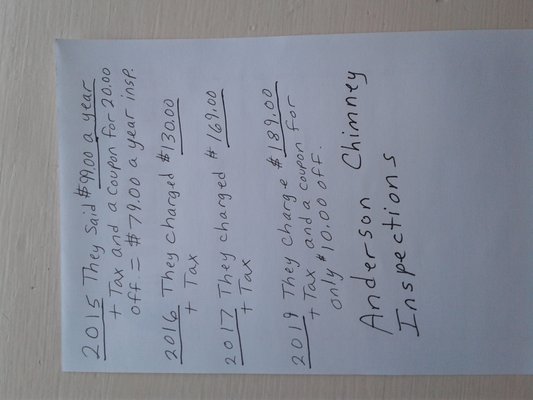 2015 They said $99.00 a year
+ Tax and a coupon for 20.00
off = $79.00 a year insp.
2016 They charged $130.00
+ Tax
2017 They charged $169.00
+ Tax
2019 They charge $189.00
+ Tax and a coupon for
only $10.00 off.
Anderson Chimney
Inspections